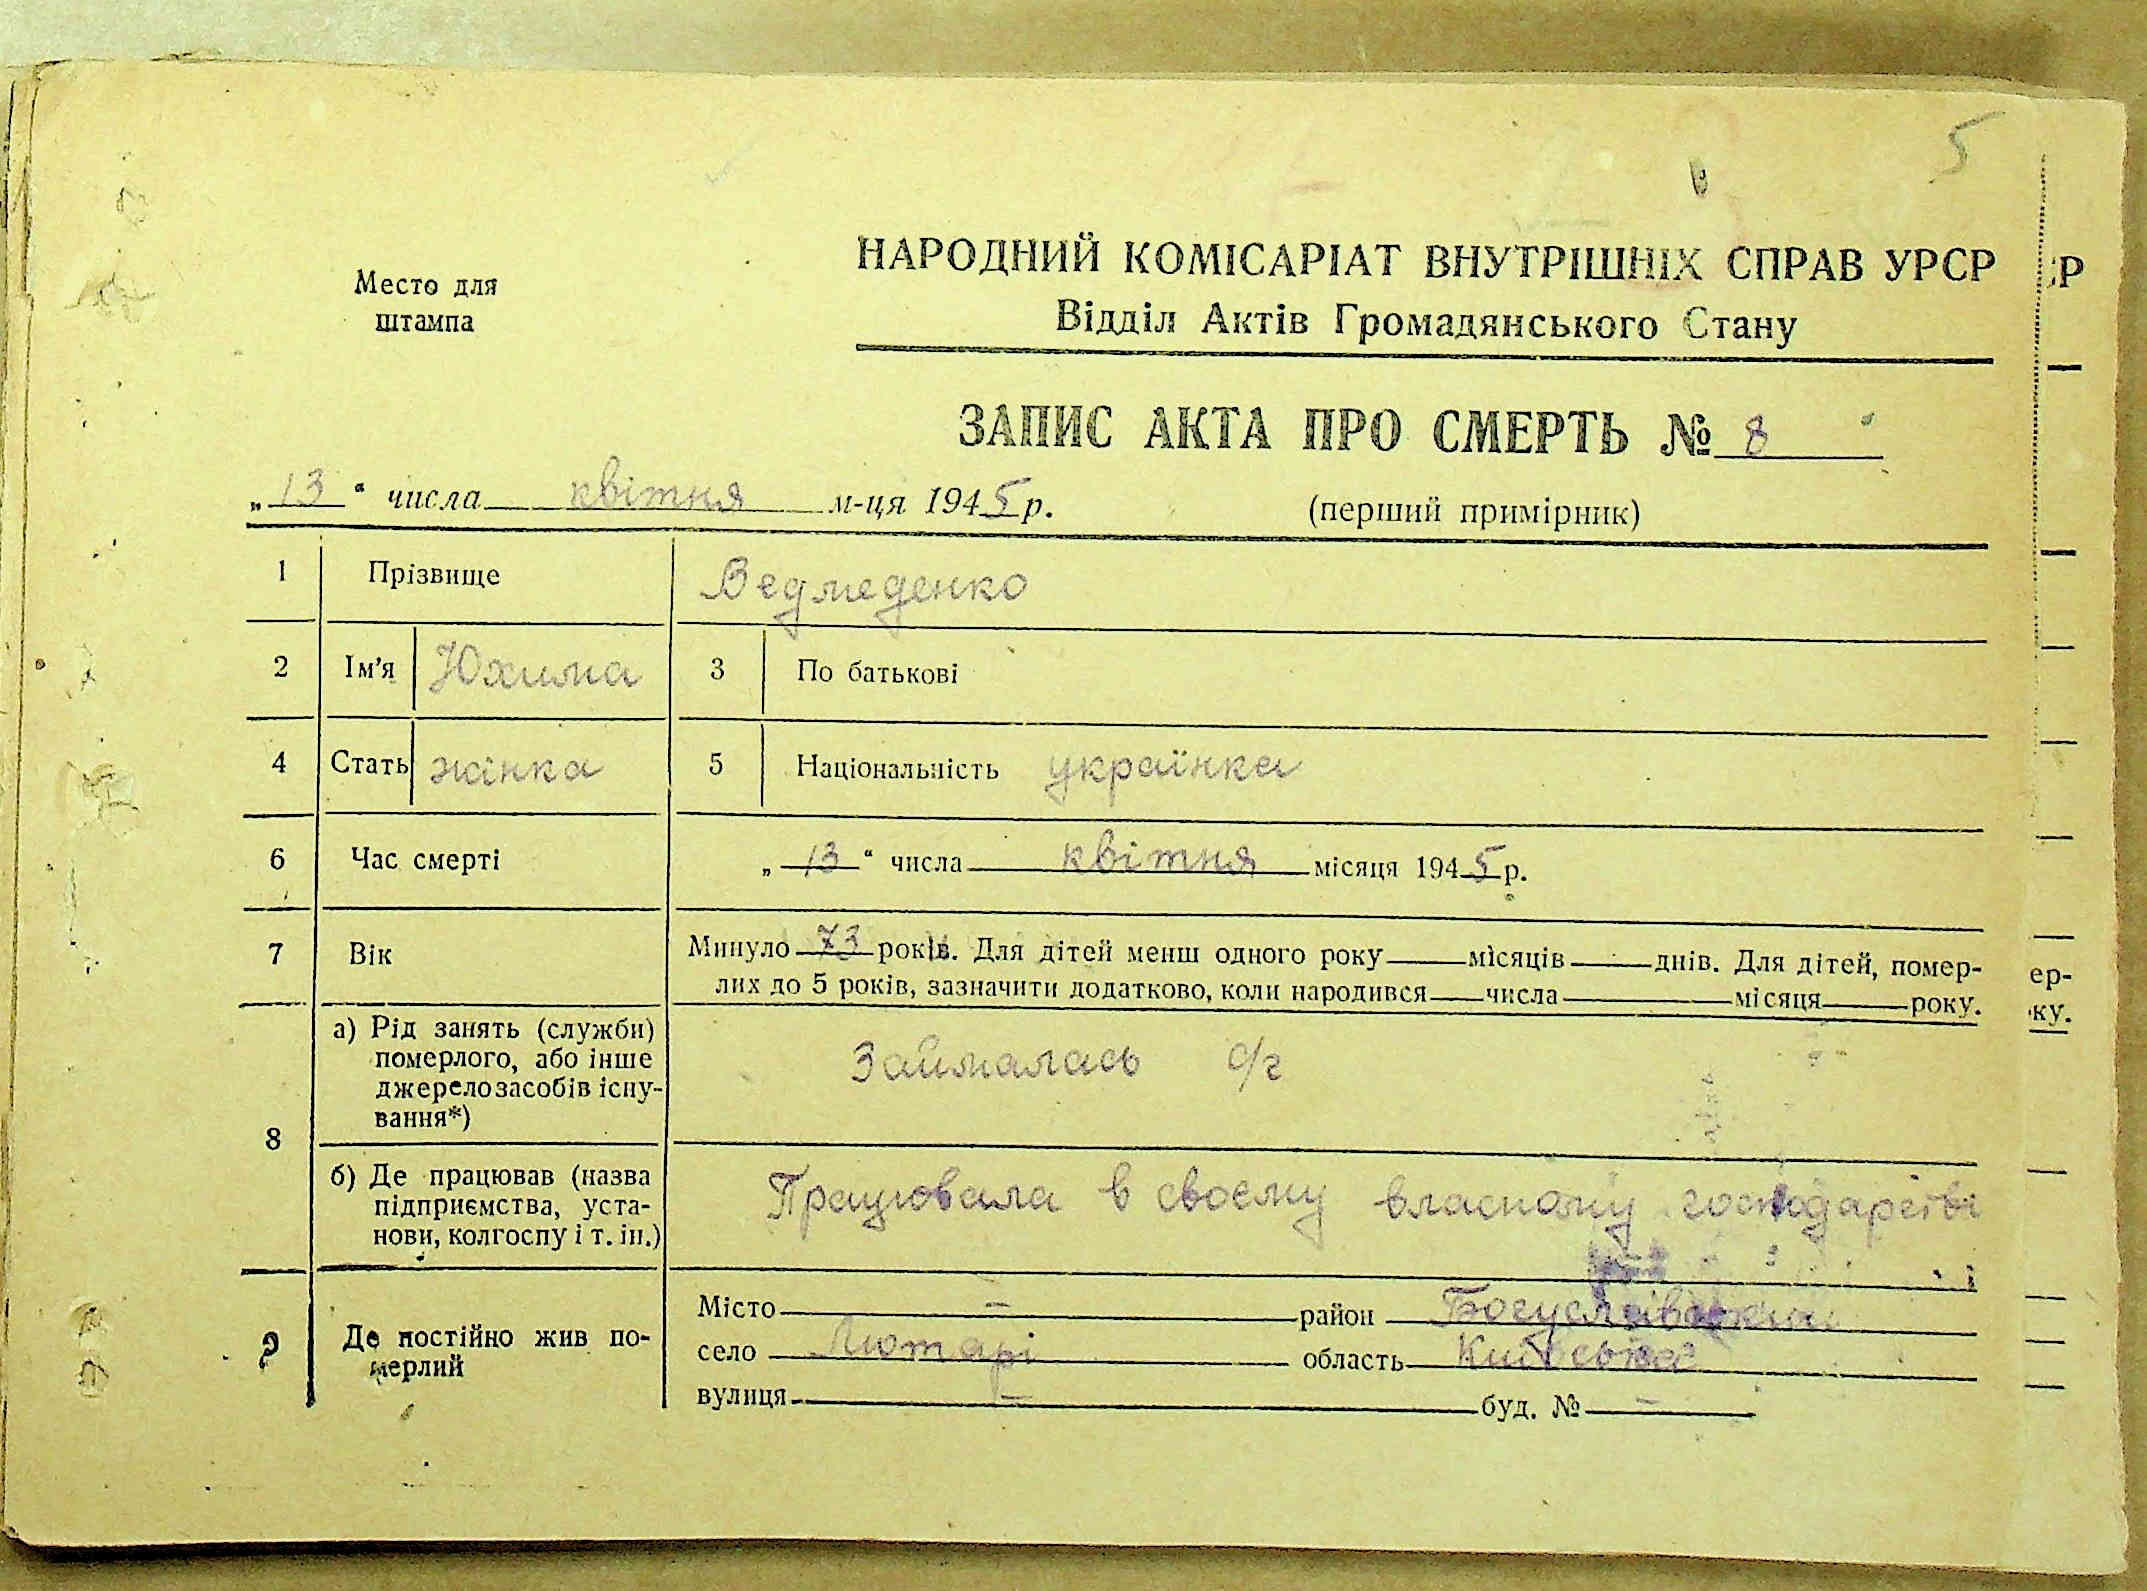 5
НАРОДНИЙ КОМІСАРІАТ ВНУТРІШНІХ СПРАВ УРСР
Відділ Актів Громадянського Стану
Место для
штампа
ЗАПИС АКТА ПРО СМЕРТЬ № 8
„13“ числа квітня м-ця 1945 р.
(перший примірник)
1 Прізвище Ведмеденко
2 Ім'я Юхима 3 По батькові
4 Стать жінка 5 Національність українка
6 Час смерті „13“ числа квітня місяця 1945 р.
7 Вік Минуло 73 років. Для дітей менш одного року місяців днів. Для дітей, помер-
лих до 5 років, зазначити додатково, коли народився числа місяця року.
8 а) Рід занять (служби)
померлого, або інше
джерело засобів існу-
вання*)
Займалась с/г
б) Де працював (назва
підприємства, уста-
нови, колгоспу і т. ін.)
Працювала в своєму власному господарстві
9 Де постійно жив по-
мерлий
Місто — район Богуславський
село Лютарі область Київська
вулиця — буд. № —
СР
ер-
ку.